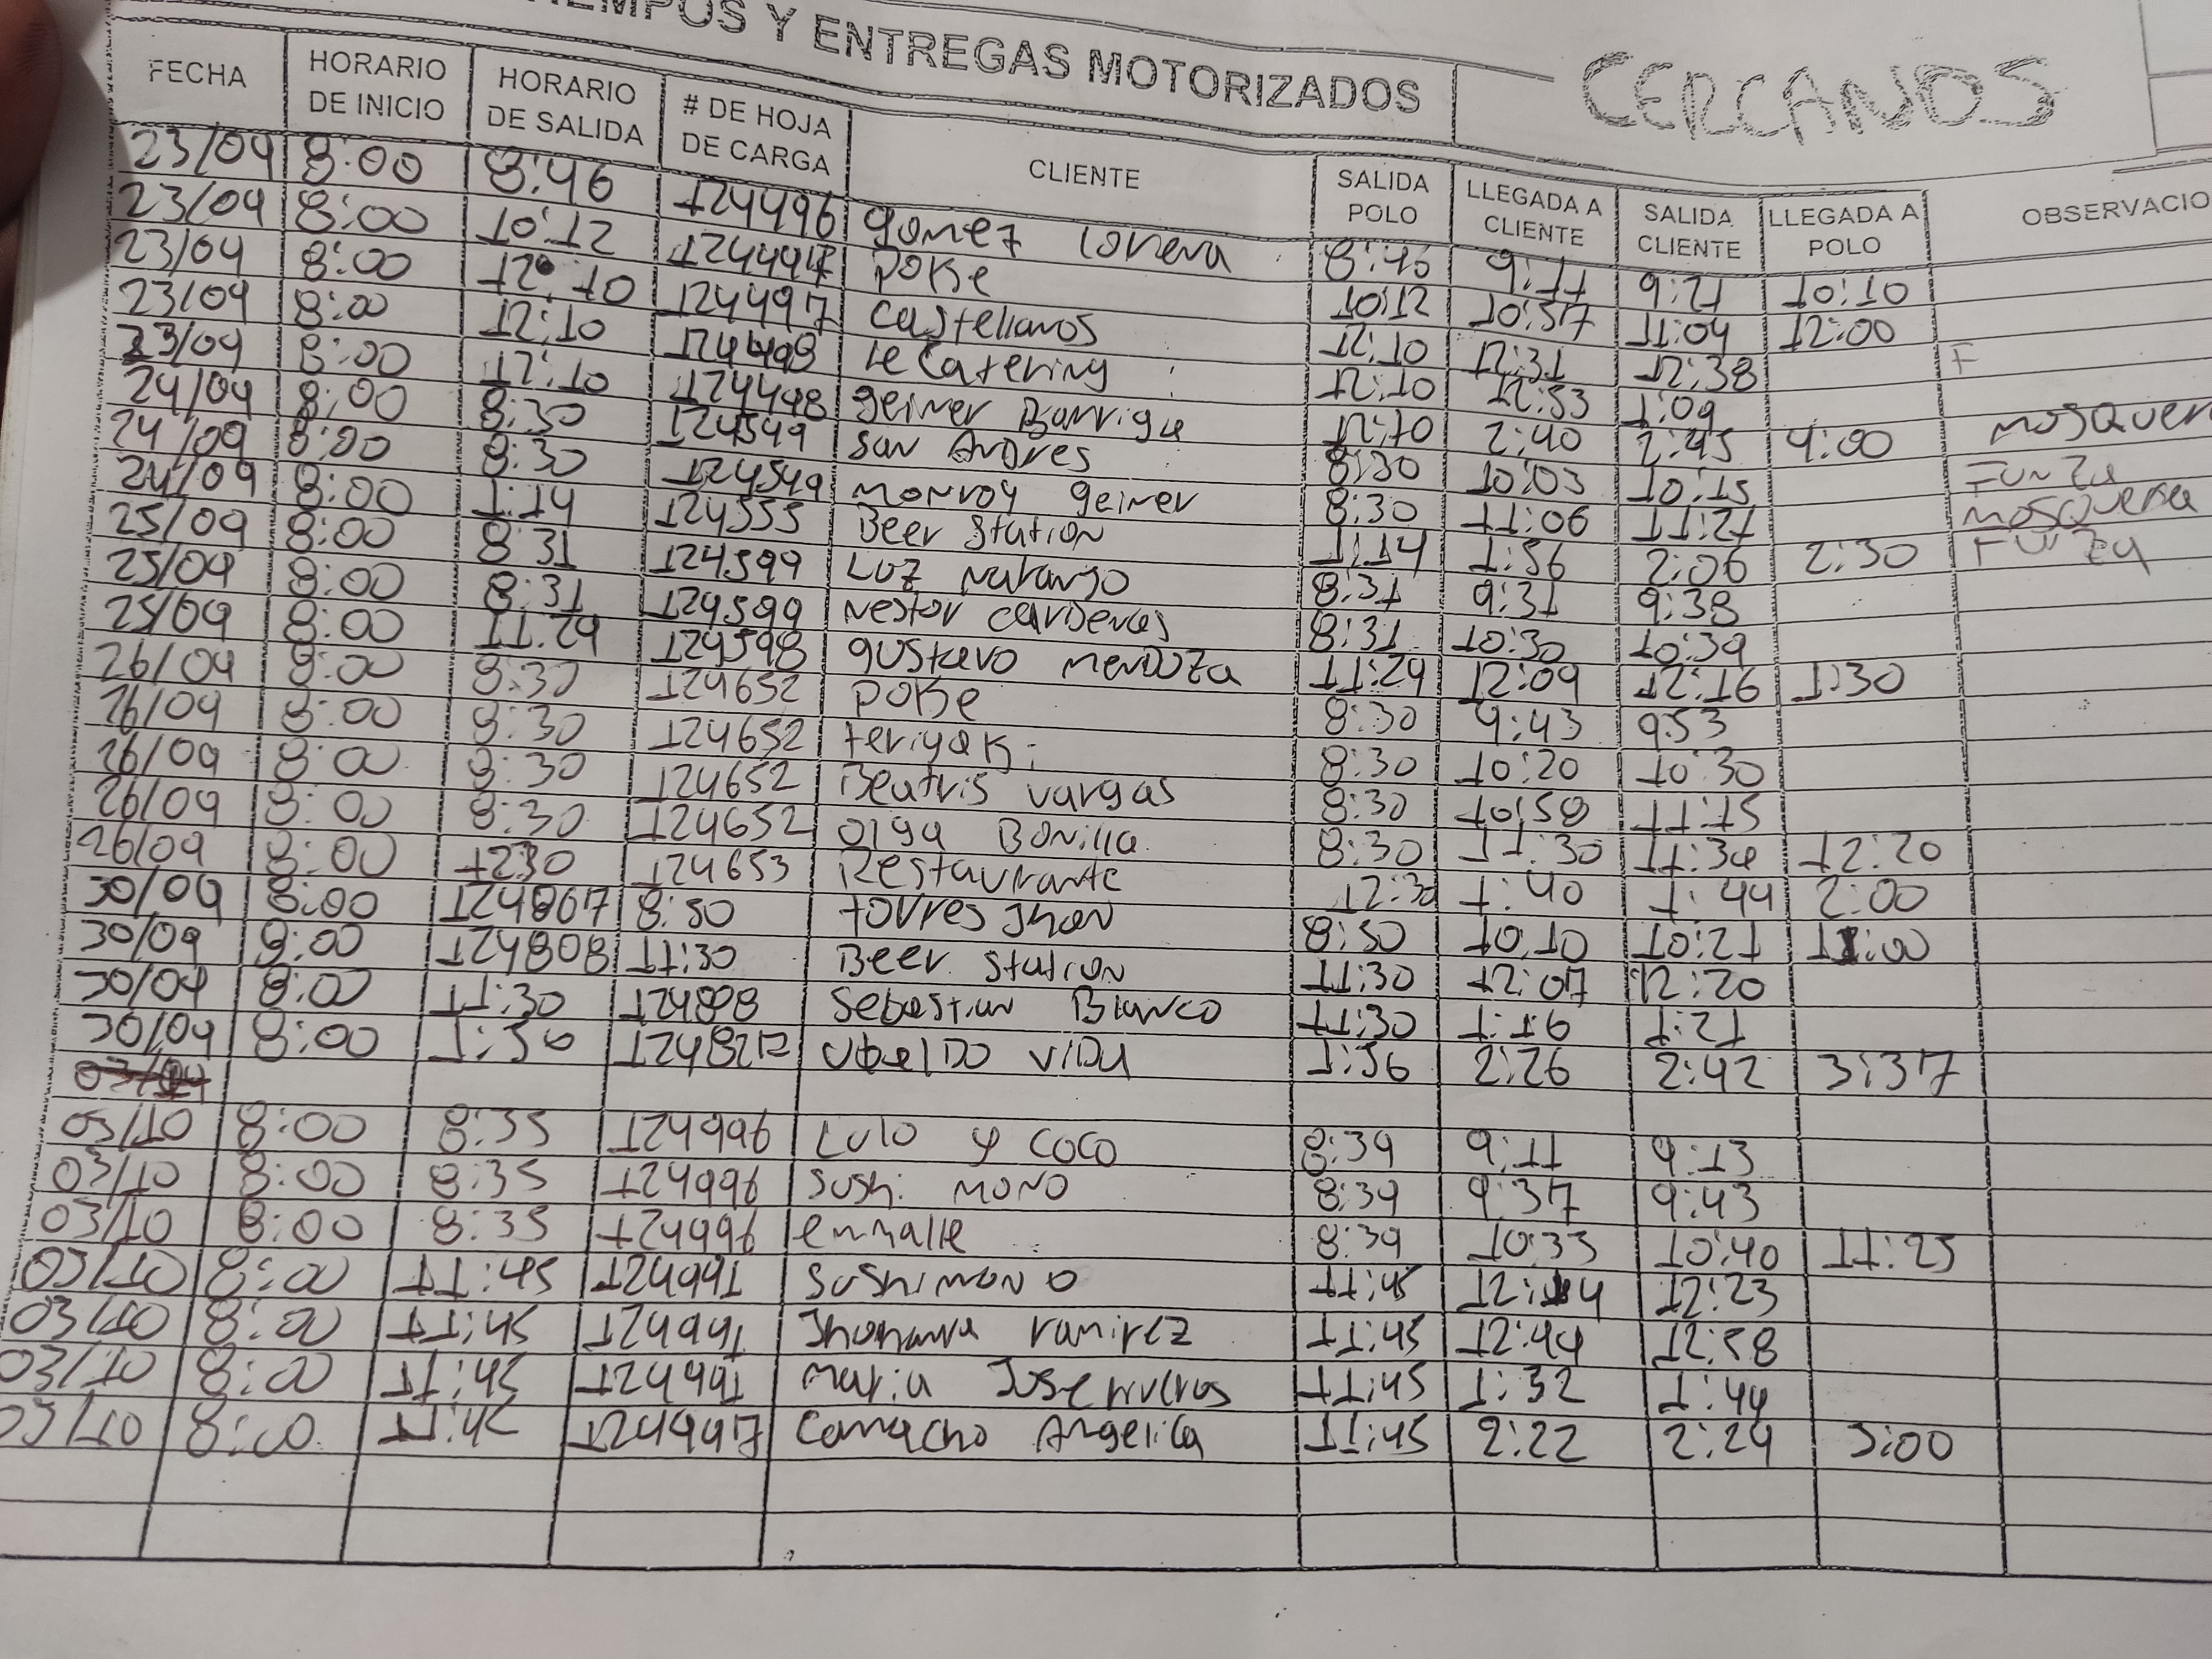 TIEMPOS Y ENTREGAS MOTORIZADOS CERCANOS
FECHA HORARIO DE INICIO HORARIO DE SALIDA # DE HOJA DE CARGA CLIENTE SALIDA POLO LLEGADA A CLIENTE SALIDA CLIENTE LLEGADA A POLO OBSERVACIO
23/09 8:00 8:46 124496 gomez Lorena 8:46 9:11 9:21 10:10
23/09 8:00 10:12 POKe 10:12 10:57 11:04 12:00
23/09 8:00 12:10 124497 Castellanos 12:10 12:31 12:38 F
23/09 8:00 12:10 124498 le Catering 12:10 12:53 1:09
23/09 8:00 12:10 124498 geiner Barriga 12:10 2:40 2:45 4:00 MOSQuer
24/09 8:00 8:30 124549 San Andres 8:30 10:03 10:15 FUNZa
24/09 8:00 8:30 124549 monroy geiner 8:30 11:06 11:21 MOSQuera
24/09 8:00 1:14 124555 Beer Station 1:14 1:56 2:06 2:30 FUNZa
25/09 8:00 8:31 124599 Luz naranjo 8:31 9:31 9:38
25/09 8:00 8:31 124599 nestor cardenas 8:31 10:30 10:39
25/09 8:00 11:29 124598 gustavo mendoza 11:29 12:09 12:16 1:30
26/09 8:00 8:30 124652 POKe 8:30 9:43 9:53
26/09 8:00 8:30 124652 teriyaki 8:30 10:20 10:30
26/09 8:00 8:30 124652 Beatris vargas 8:30 10:58 11:15
26/09 8:00 8:30 124652 Olga Bonilla 8:30 11:30 11:34 12:20
26/09 8:00 1230 124653 Restaurante 12:30 1:40 1:44 2:00
30/09 8:00 124867 8:50 torres Jhon 8:50 10:10 10:21 11:00
30/09 8:00 124808 11:30 Beer Station 11:30 12:07 12:20
30/09 8:00 11:30 Sebastian Blanco 11:30 1:16 1:21
30/09 8:00 1:56 Ubaldo vida 1:56 2:26 2:42 3:37
03/10 8:00 8:35 124996 Lulo y coco 8:39 9:11 9:13
03/10 8:00 8:35 124996 Sushi mono 8:39 9:37 9:43
03/10 8:00 8:35 124996 enmalle 8:39 10:35 10:40 11:25
03/10 8:00 11:45 124991 Sushimono 11:45 12:14 12:23
03/10 8:00 11:45 124991 Jhohana ramirez 11:45 12:44 12:58
03/10 8:00 11:45 124991 maria Jose riveros 11:45 1:32 1:44
03/10 8:00 11:45 124997 Camacho Angelica 11:45 2:22 2:29 3:00